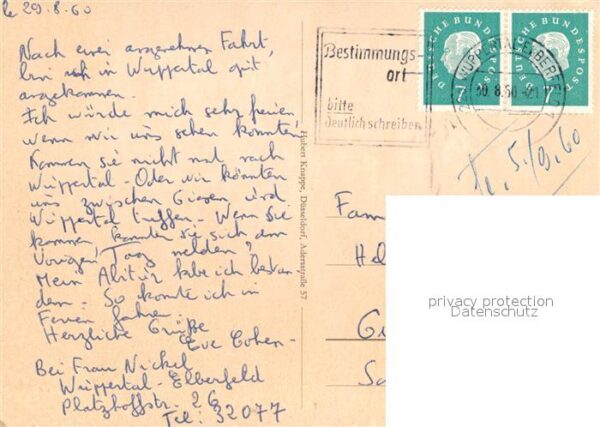 le 29.8.60
Nach einer angenehmen Fahrt,
bin ich in Wuppertal gut
angekommen.
Ich würde mich sehr freuen
wenn wir uns sehen konnten
Kommen sie nicht mal nach
Wuppertal - Oder wir könnten
uns zwischen Giesen und
Wuppertal treffen. Wenn Sie
kommen, konnten sie sich dem
Vorigen Tag melden?
Mein Abitur habe ich bestan
den. So konnte ich in
Ferien fahren.
Herzliche Grüße
Eve Cohen-
Bei Frau Nickel
Wuppertal-Elberfeld
Platzhoffstr. 26
Tel: 32077
Hubert Knappe, Düsseldorf, Adersstraße 57
Bestimmungs-
ort
bitte
deutlich schreiben
DEUTSCHE BUNDESPOST
7
DEUTSCHE BUNDESPOST
7
WUPPERTAL-ELBERFELD
30.8.60-21
5./9.60
Fam
privacy protection
Datenschutz